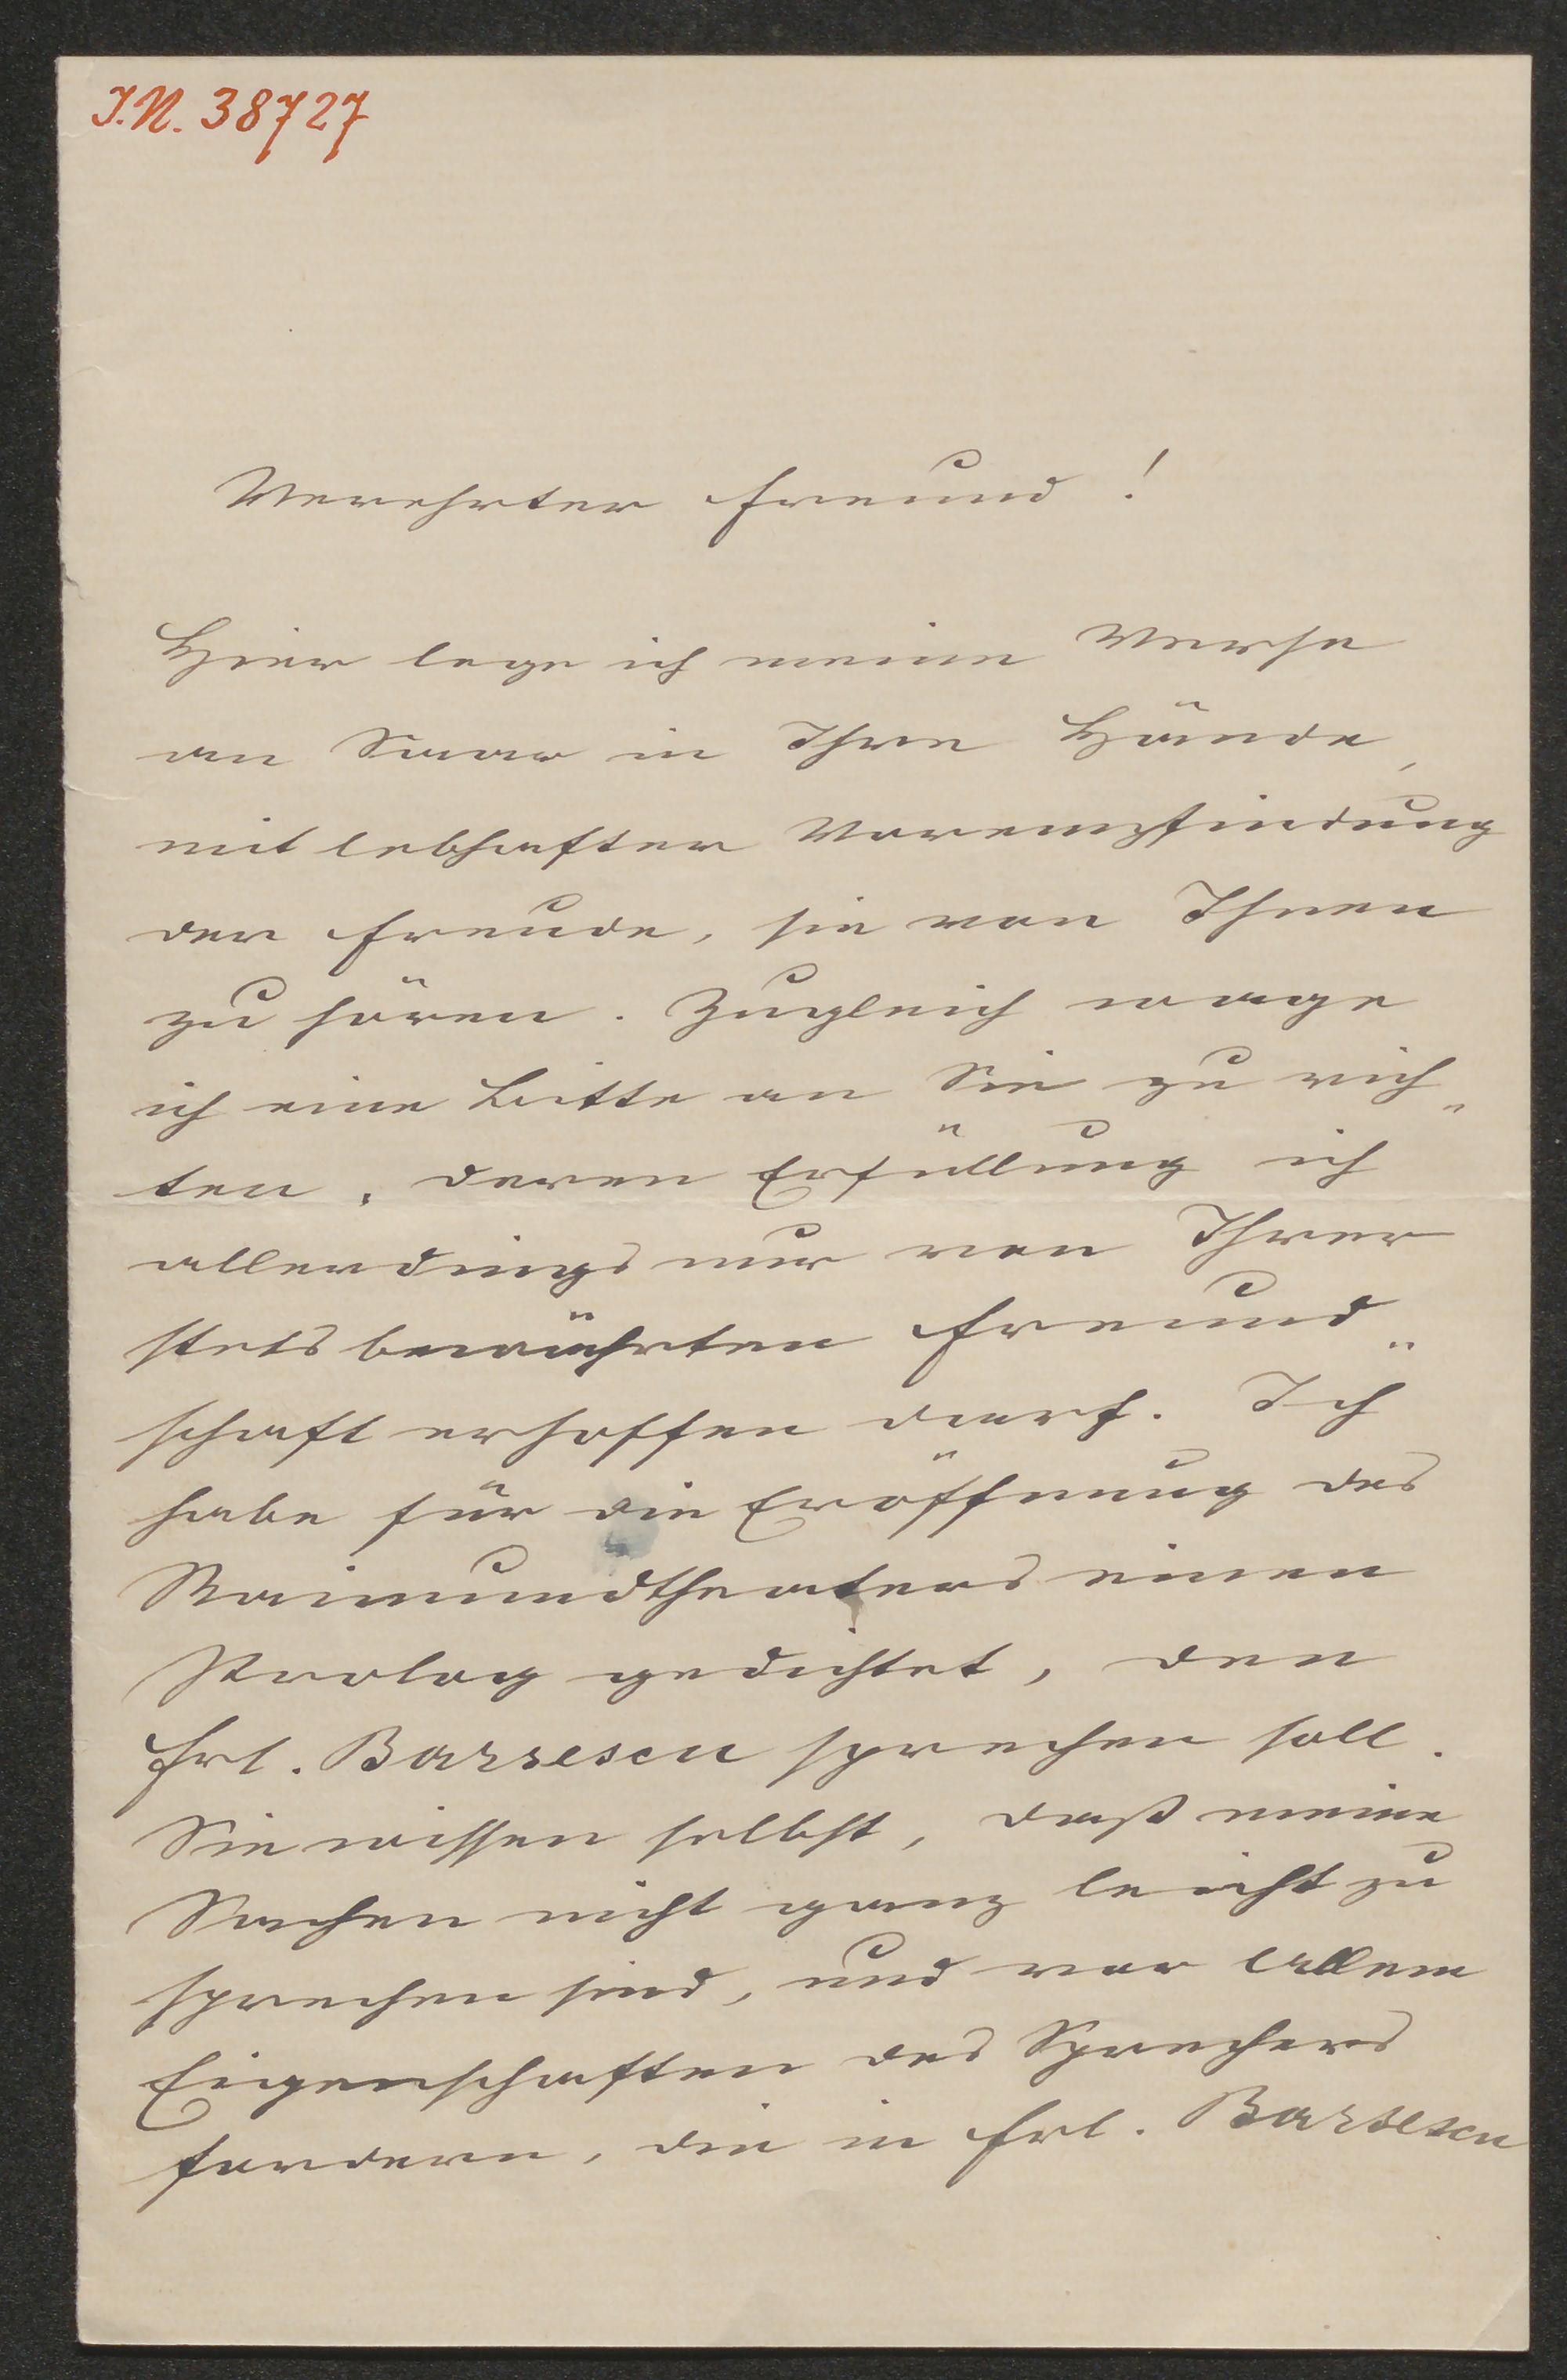 J.N. 38727
Verehrter Freund!
Hier lege ich meine Verse
an Saar in Ihre Hände,
mit lebhafter Vorempfindung
der Freude, sie von Ihnen
zu hören. Zugleich wage
ich eine Bitte an Sie zu rich„
ten, deren Erfüllung ich
allerdings nur von Ihrer
stets bewährten Freund„
schaft erhoffen darf. Ich
habe für die Eröffnung des
Raimundtheaters einen
Prolog gedichtet, den
Frl. Barsescu sprechen soll.
Sie wissen selbst, daß meine
Sachen nicht ganz leicht zu
sprechen sind, und vor Allem
Eigenschaften des Sprechers
fordern, die in Frl. Barsescu